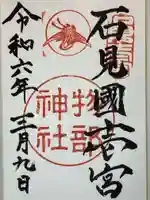 石見國宮
物部
神社
令和六年三月九日